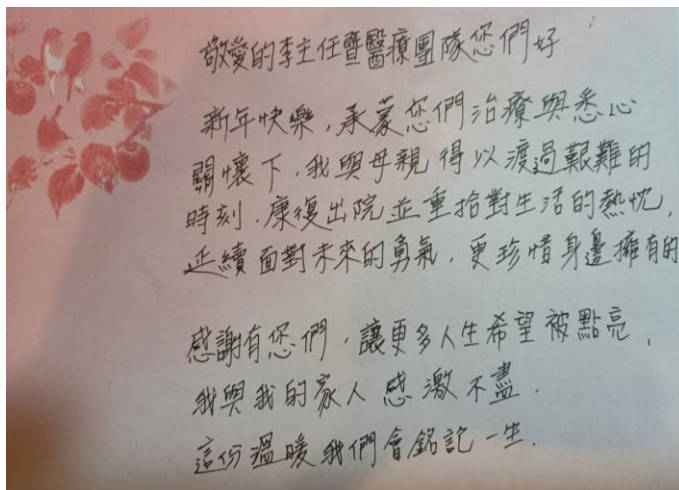 敬愛的李主任暨醫療團隊您們好
新年快樂，承蒙您們治療與悉心
關懷下，我與母親得以渡過艱難的
時刻，康復出院並重拾對生活的熱忱，
延續面對未來的勇氣，更珍惜身邊擁有的
感謝有您們，讓更多人生希望被點亮，
我與我的家人感激不盡．
這份溫暖我們會銘記一生．